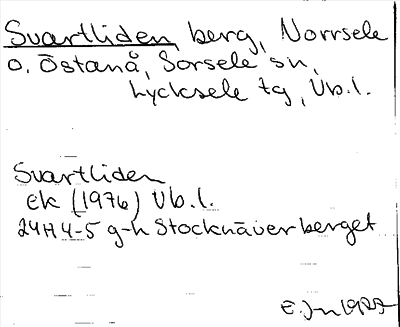 Svartliden, berg, Norrsele
o. Östanå, Sorsele sn,
Lycksele tg, Vb.l.
Svartliden
Ek (1976) Vb.l.
24H 4-5 g-h Stocknäverberget
E. Jn 1987